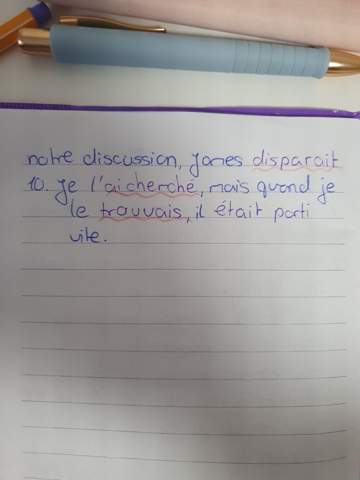 notre discussion, Jones disparait
10. Je l'ai cherché, mais quand je
le trouvais, il était parti
vite.